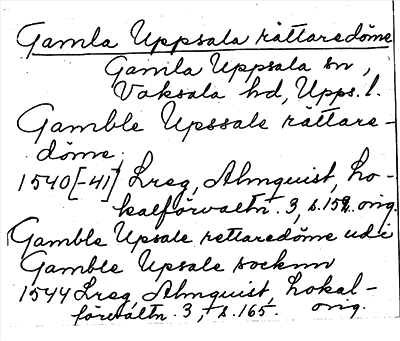 Gamla Uppsala rättaredöme
Gamla Uppsala sn,
Vaksala hd, Upps. l.
Gamble Upssale rättare-
döme.
1540[-41] Lreg, Almquist, Lo-
kalförvaltn. 3, s. 152. orig.
Gamble Upsale rettaredöme udi
Gamble Upsale socknn
1544 Lreg, Almquist, Lokal-
förvaltn. 3, s. 165. orig.